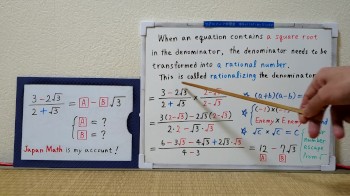 3-2√3 / 2+√3 = A - B √3
{ A = ?
B = ?
Japan Math is my account!
When an equation contains a square root
in the denominator, the denominator needs to be
transformed into a rational number.
This is called rationalizing the denominator
= 3-2√3 / 2+√3 × 2-√3 / 2-√3
☆ (a+b)(a-b) =
= 3(2-√3)-2√3(2-√3) / 2·2-√3·√3
☆ (-1)×(
Enemy × Enem
☆ √C × √C = C
number
escape
from
= 6-3√3-4√3+2√3·√3 / 4-3
= 12 - 7√3
A B